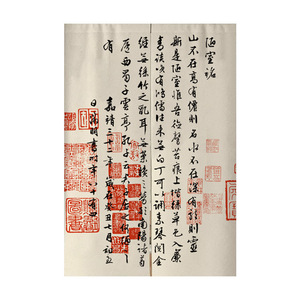 陋室銘
山不在高有僊則名水不在深有龍則靈
斯是陋室惟吾德馨苔痕上階綠草色入簾
青談笑有鴻儒往來無白丁可以調素琴閱金
經無絲竹之亂耳無案牘之勞形南陽諸葛
廬西蜀子雲亭孔子云何陋之
有
嘉靖三十二年歲在癸丑七月
日徵明書時年八十有四